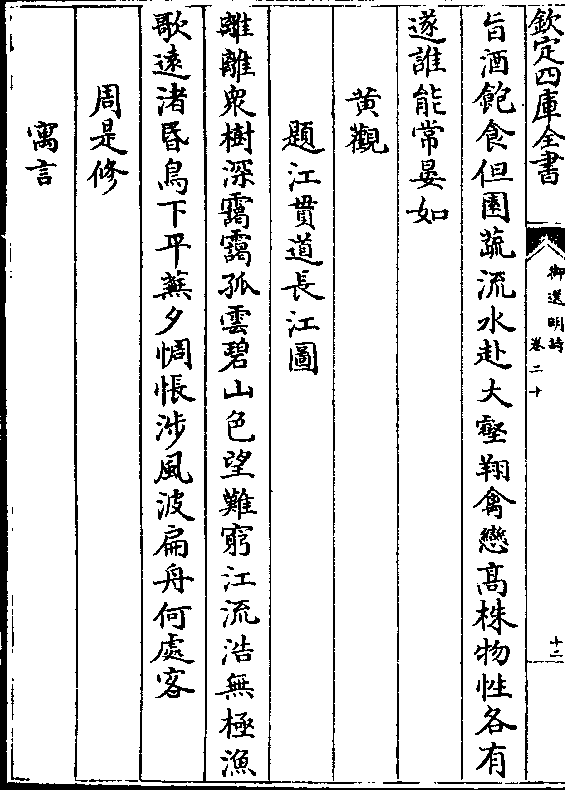 欽定四庫全書
御選明詩
卷二十
十二
旨酒飽食但園蔬流水赴大壑翔禽戀髙株物性各有
遂誰能常晏如
黄觀
題江貫道長江圖
離離衆樹深靄靄孤雲碧山色望難窮江流浩無極漁
歌遠渚昏鳥下平蕪夕惆悵涉風波扁舟何處客
周是修
寓言